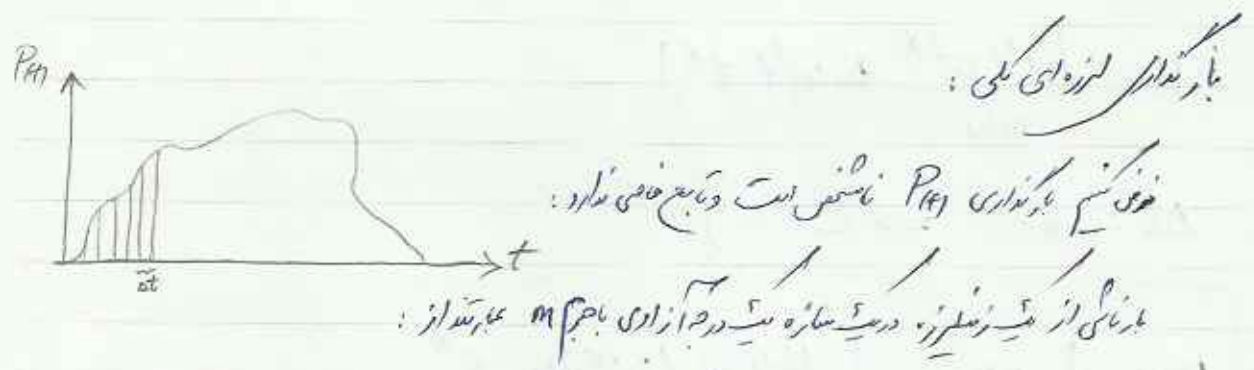 بارگذاری لرزه‌ای کلی :
P(t)
فرض کنیم بارگذاری P(t) نامشخص است و تابع خاصی ندارد :
t
Δt
بار ناشی از یک زمینلرزه در یک سازه یک درجه آزادی با جرم m عبارتند از :